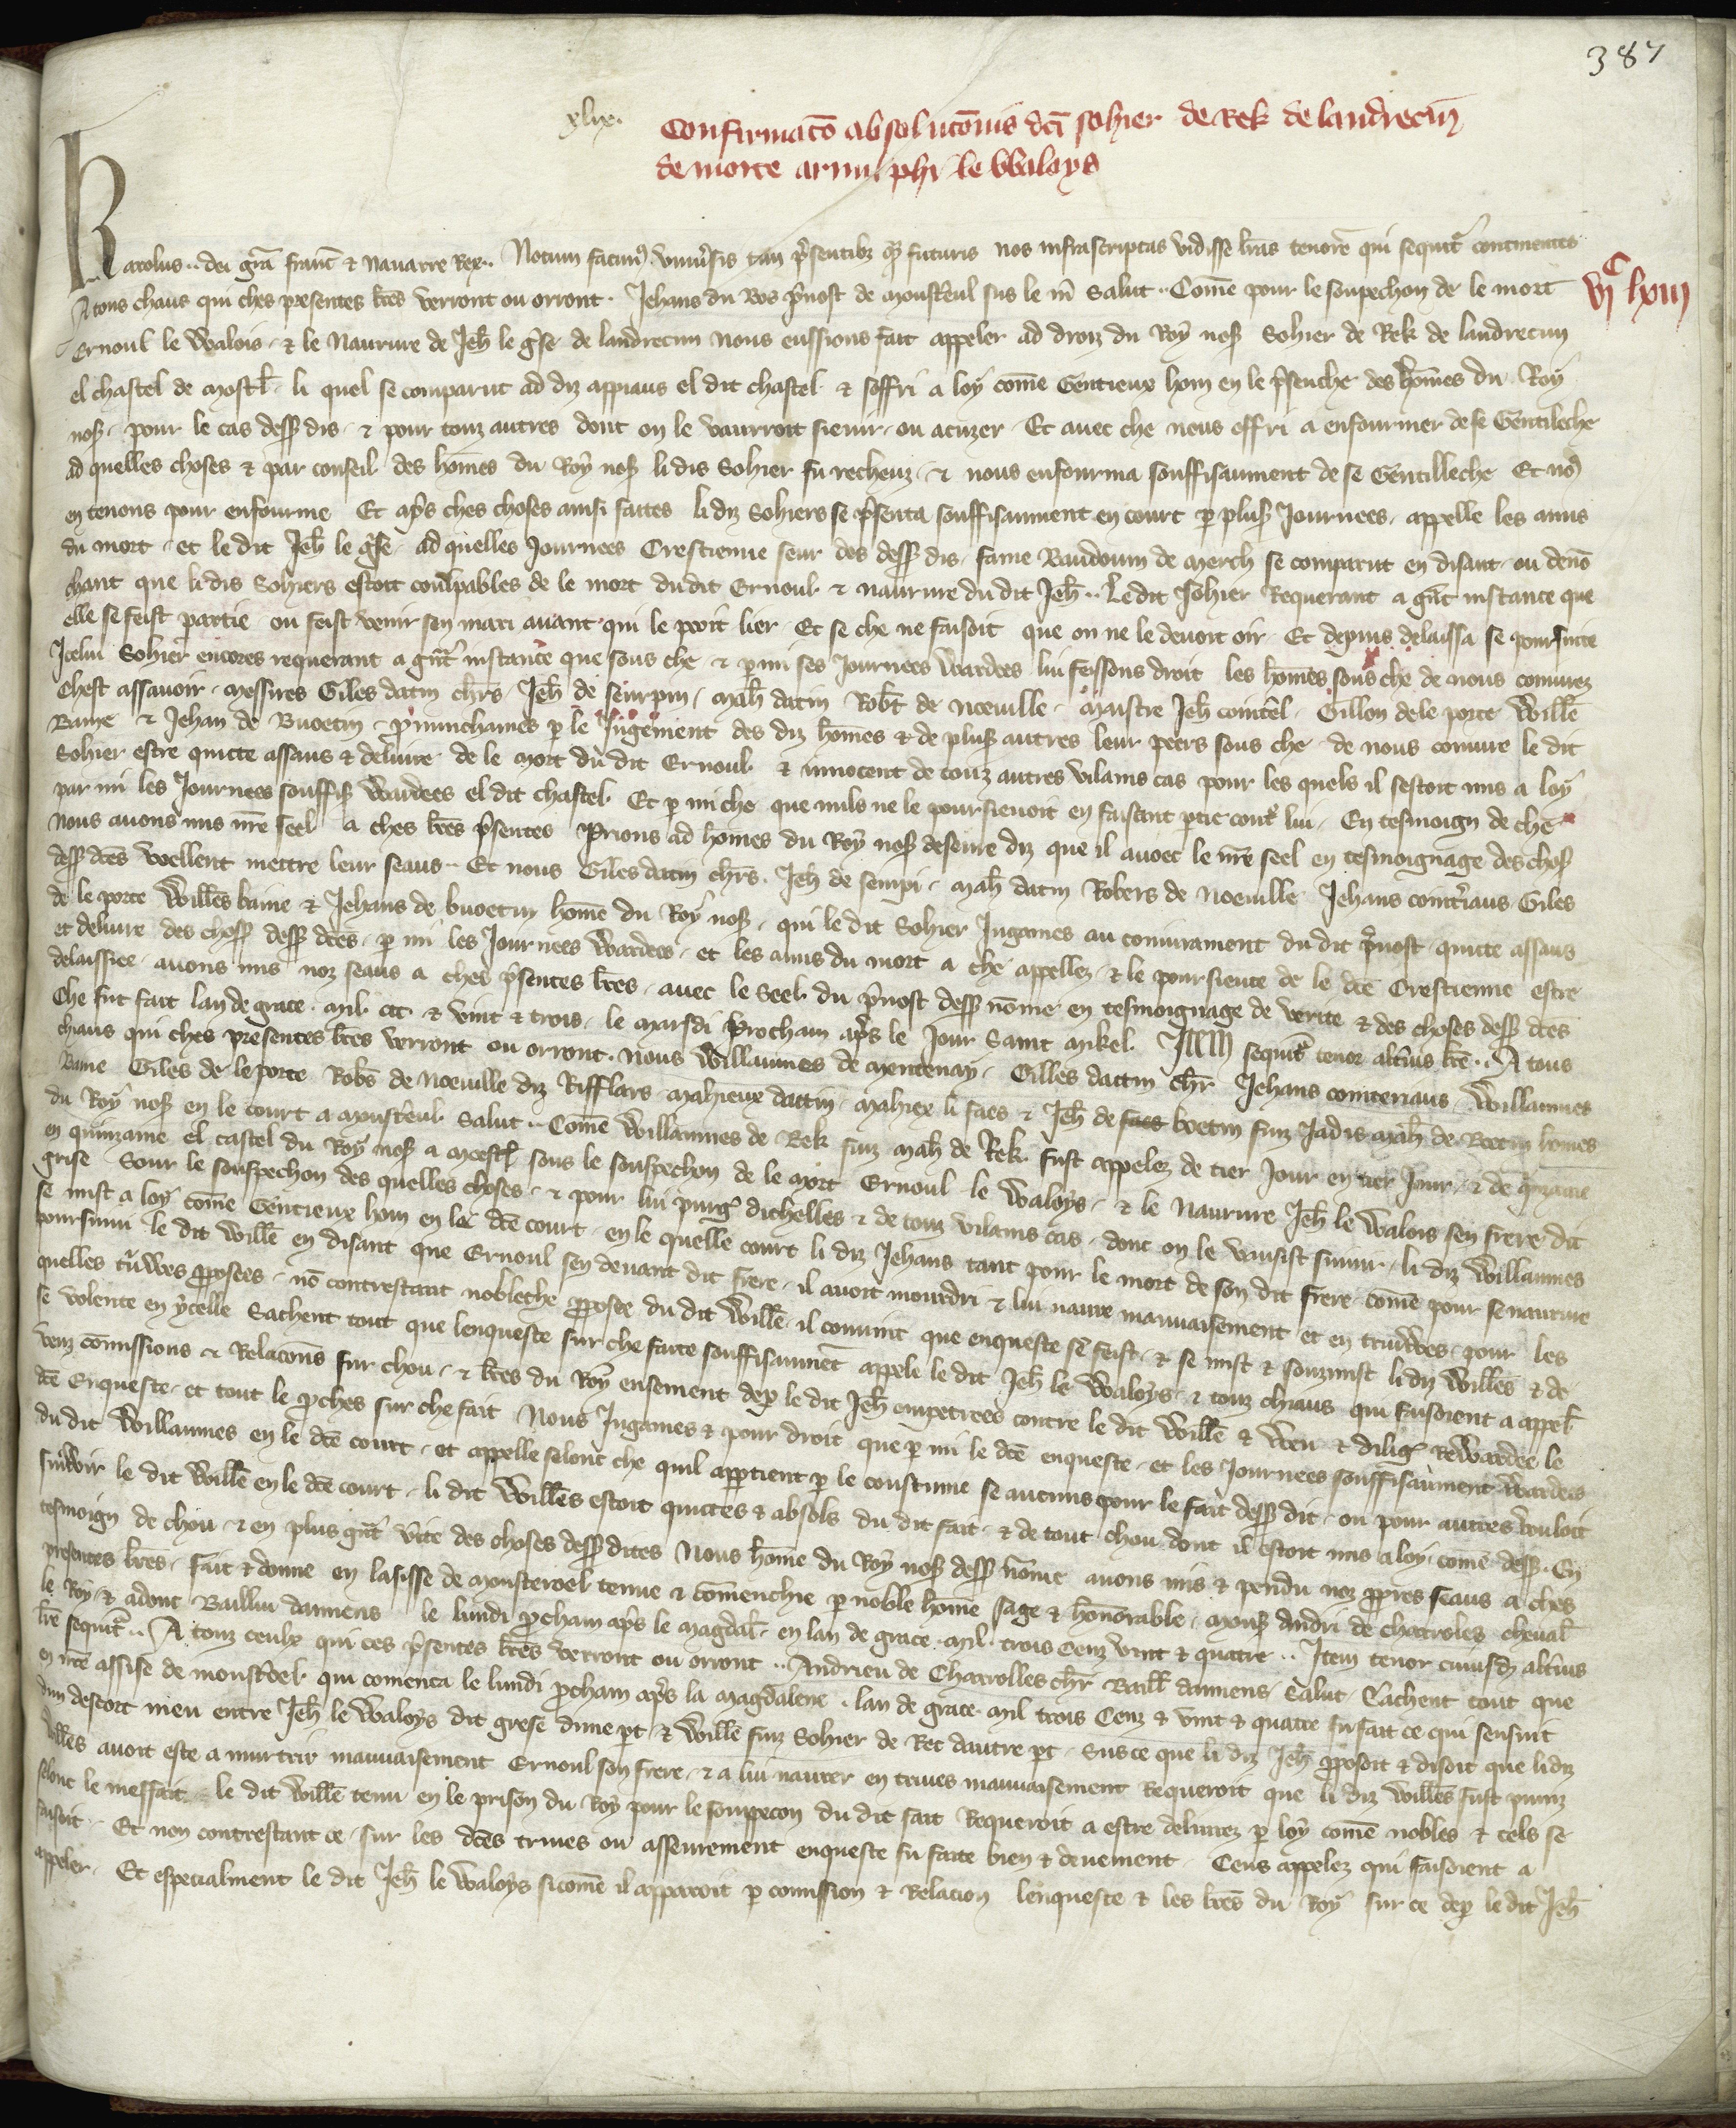 387
xlix. Confirmatō absolutōnis dcī sohier de Rek de landrecun̄
de morte arnu. phi le Waloys
Karolus.. dei gr̄a franc̄ & Nauarre Rex.. Notum facim9 vniu'sis tam p̄sentibz q̄3 futuris nos infrascriptas vidisse lr̄as tenore qui sequit' continentes
vjC lxiij
A tous chaus qui ches presentes lr̄es verront ou orront. Jehans du Bos p̄uost de Monst'eul sus le m̄ Salut.. Com̄e pour le soupechon de le mort
Ernoul le Walois. & le Naurure de Jeh̄ le g'se de landrecun nous eussions fait appeler ad droiz du Roy nos̄ Sohier de Rek de landrecun
el chastel de Mostl̄. li quel se comparut ad diz appiaus el dit chastel & soffri a loy com̄e Gentieux hom en le p̄senche des hom̄es du Roy
nos̄. pour le cas dess̄ dis. & pour touz autres dont on le vaurroit sieuir. ou acuzer. Et auec che nous offri a enfourmer de se Gentileche
ad quelles choses & par conseil des hom̄es du Roy nos̄ li dis Sohier fu recheuz. & nous enfourma souffisaument de se Gentilleche Et no9
en tenons pour enfourme Et ap̄s ches choses ainsi faites li diz Sohiers se p̄senta souffisaument en court p plus̄ Journees. appelle les amis
du mort. et le dit Jeh̄ le g'se. ad quelles Journees Crestienne seur des dess̄ dis. fame Baudouin de Merch se comparut en disant. ou denō
chant que li dis Sohiers estoit coulpables de le mort du dit Ernoul & naurure du dit Jeh̄.. Ledit Sohier Requerant a gūt instance que
elle se feist partie ou feist venir sen mari auant qui le peoit lier. Et se che ne faisoit que on ne le deuoit oir. Et depuis delaissa se poursuite
Icelui Sohier encores requerant a gūt instance que sous che & p mi ses Journees wardees lui feissons droit les hom̄es sous che de nous coniurez
Chest assauoir. Messires Giles datin ch̄rs. Jeh̄ de sempin. Mah̄ datin Rob̄t de Noeuille. Maistre Jeh̄ cointēl. Gillon dele porte Will̄e
Baine & Jehan de Buoetin. p̄nunchames p le Jugement des diz hom̄es & de plus̄ autres leur peers sous che de nous coniure le dit
Sohier estre quitte assaus & deliure de le Mort du dit Ernoul & innocent de touz autres vilains cas pour les quels il sestoit mis a loy
par mi les Journees souffis̄ wardees el dit chastel. Et p mi che que nuls ne le poursieuoit en faisant ptie cont' lui. En tesmoign de che
nous auons mis nr̄e seel a ches lr̄es p̄sentes Prions ad hom̄es du Roy nos̄ deseure diz que il auoec le nr̄e seel en tesmoignage des chos̄
dess̄ dc̄es voellent mettre leur seaus.. Et nous Giles datin ch̄rs. Jeh̄ de sempi. Mah̄ datin Robers de Noeuille Jehans coint'iaus Giles
de le porte Will̄es baine & Jehans de buoetin hom̄e du Roy nos̄. qui le dit Sohier Jugames au coniurament du dit p̄uost. quitte assaus
et deliure des chos̄ dess̄ dc̄es. p mi les Journees wardees. et les amis du mort a che appellez. & le poursieute de le dc̄e Crestienne estre
delaissiee. auons mis noz seaus a ches p̄sentes lr̄es. auec le Seel du p̄uost dess̄ nom̄e en tesmoignage de verite & des choses dess̄ dc̄es
Che fut fait lan de grace. Mil ccc & vint & trois. le Marsdi Prochain ap̄s le Jour Saint Mikel. Item sequit' tenor alt'ius lr̄e.. A tous
chaus qui ches presentes lr̄es verront ou orront. nous Willaumes de Mentenay. Gilles dattin ch̄r Jehans cointeriaus. Willaumes
Baine Giles de le porte Rob̄s de Noeuille diz Rifflars. Mahieux dattin. Mahiex li faes & Jeh̄ de faes boetin fiuz Jadis Mah̄ de Boetin hom̄es
du Roy nos̄ en le court a Monst'eul. Salut.. Com̄e Willaumes de Rek fiuz Mah̄ de Rek. fust appelez de tier Jour en tier Jour. & de q̄nzaine
en quinzaine el castel du Roy nos̄ a Moestl̄ sous le souspechon de le Mort Ernoul le Waloys. & le Naurure Jeh̄ le Walois sen frere dit
grise Sour le souspechon des quelles choses. & pour lui purg' dichelles & de touz vilains cas. dont on le vausist suiuir. li diz Willaumes
se mist a loy com̄e Gentieux hom en le dc̄e court. en le quelle court li diz Jehans tant pour le mort de son dit frere. com̄e pour se naurure
poursuiui le dit Will̄e en disant que Ernoul sen deuant dit frere. il auoit mourdri & lui naure mauuaisement et en triuwes. pour les
quelles t'uwes p̄posees. nō contrestant nobleche p̄posee du dit Will̄e il conuint que enqueste se feist. & se mist & souzmist li diz Will̄es & de
se volente en ycelle Sachent tout que lenqueste sur che faite souffisaumēt appele le dit Jeh̄ le Waloys & touz chiaus qui faisoient a appel̄
veuz com̄issions & Relacōns sur chou. & lr̄es du Roy ensement dep̄ le dit Jeh̄ empetrees contre le dit Will̄e & veu & dilig' Rewardee le
dc̄e Enqueste. et tout le p̄ches sur che fait Nous Jugames & pour droit que p mi le dc̄e enqueste. et les Journees souffisaument wardees
du dit Willaumes en le dc̄e court. et appelle selonc che quil appartient p le coustume se aucuns pour le fait dess̄ dit. ou pour autres vouloit
suiwir le dit Will̄e en le dc̄e court. li dit Will̄es estoit quittes & absols du dit fait. & de tout chou dont il estoit mis a loy. com̄e dess̄. En
tesmoign de chou. & en plus gūt v'ite des choses dess̄ dites Nous hom̄e du Roy nos̄ dess̄ nom̄e auons mis & pendu noz p̄pres seaus a ches
presentes lr̄es. fait & donne en lasisse de Monsteroel tenue & com̄enchie p noble hom̄e sage & honnorable. Mons̄ Andri de charroles cheual̄
le Roy. & adont Bailliu damiens le lundi p̄chain ap̄s le Magdal̄. en lan de grace. Mil. trois Cenz vint & quatre.. Item tenor cuiusd alt'ius
lr̄e sequit'.. A touz ceulx qui ces p̄sentes lr̄es verront ou orront.. Andrieu de Charrolles ch̄r Baill̄ damiens. Salut. Sachent tout que
en nr̄e assise de monst'oel. qui comenca le lundi p̄chain ap̄s la magdalene. lan de grace Mil trois Cenz & vint & quatre fu fait ce qui sensuit
dun descort meu entre Jeh̄ le Waloys dit grese dune pt & Will̄e fiuz Sohier de Rec dautre pt. Sus ce que li diz Jeh̄ p̄posoit & disoit que li diz
Will̄es auoit este a murtrir mauuaisement Ernoul son frere. & a lui naurer en triues mauuaisement Requeroit que li diz Will̄es fust puniz
selonc le meffait. le dit Will̄e tenu en le prison du Roy pour le soupecon du dit fait Requeroit a estre deliurez p loy com̄e nobles & tels se
faisoit. Et non contrestant ce. sur les dc̄es triues ou asseurement enqueste fu faite bien & deuement. Ceus appelez qui faisoient a
appeler. Et especialment le dit Jeh̄ le Waloys sicom̄e il apparoit p com̄ission & Relacion lenqueste & les lr̄es du Roy sur ce dep̄ le dit Jeh̄